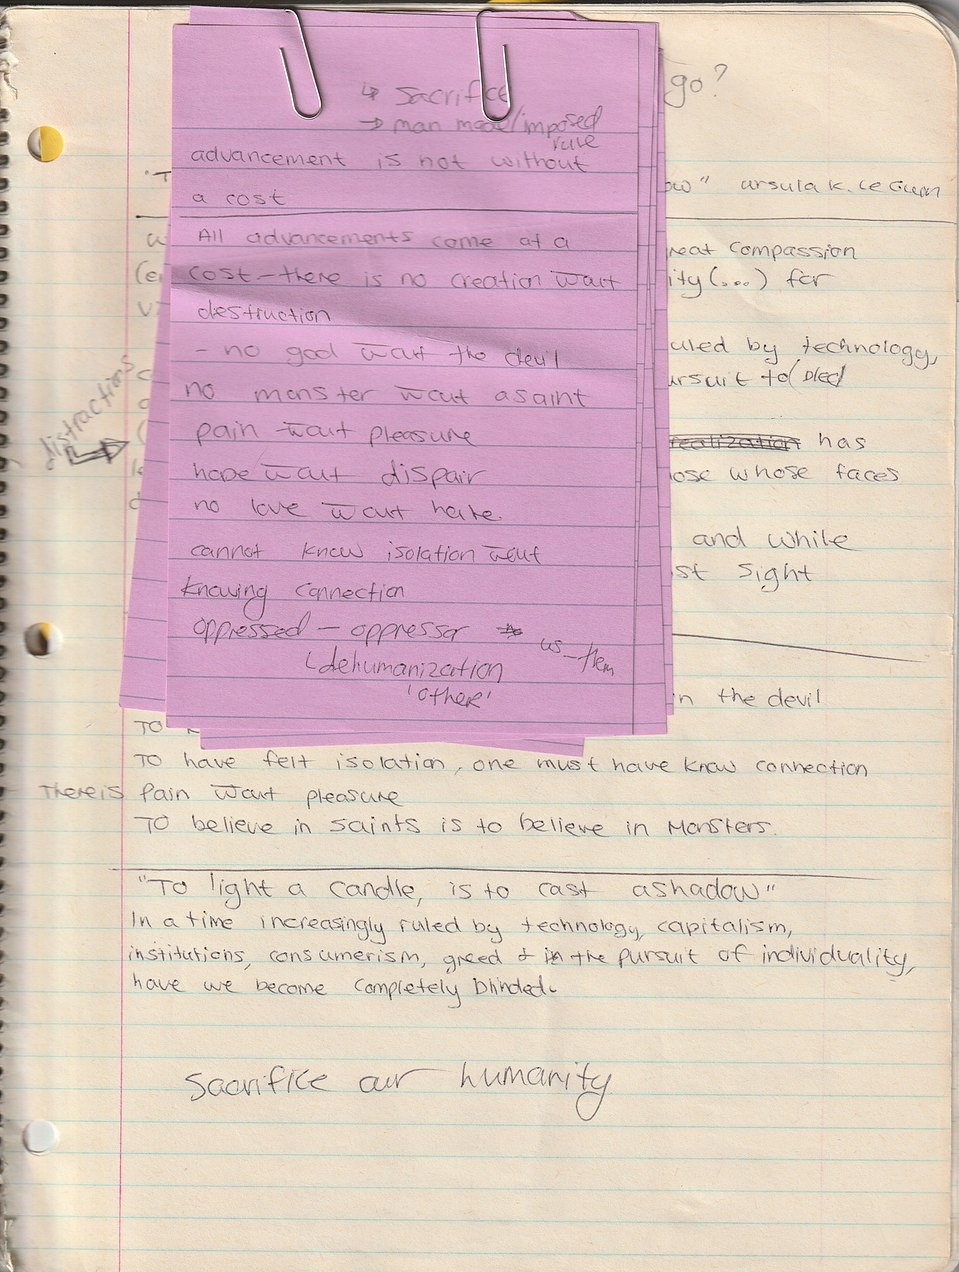 go?
↳ sacrifice
→ man made/imposed
rule
advancement is not without
a cost
"T
ow" ursula K. Le Guin
All advancements come at a
cost – there is no creation w̅out
destruction
– no god w̅out the devil
no monster w̅out a saint
pain w̅out pleasure
hope w̅out dispair
no love w̅out hate.
cannot know isolation w̅out
knowing connection
oppressed – oppressor
us – them
dehumanization
'other'
reat compassion
ity (...) for
uled by technology,
ursuit to(
realization has
ose whose faces
and while
st sight
distractions
n the devil
TO
TO have felt isolation, one must have know connection
There is pain w̅out pleasure
TO believe in saints is to believe in Monsters.
"To light a candle, is to cast a shadow"
In a time increasingly ruled by technology, capitalism,
institutions, consumerism, greed & in the pursuit of individuality,
have we become completely blinded.
Sacrifice our humanity